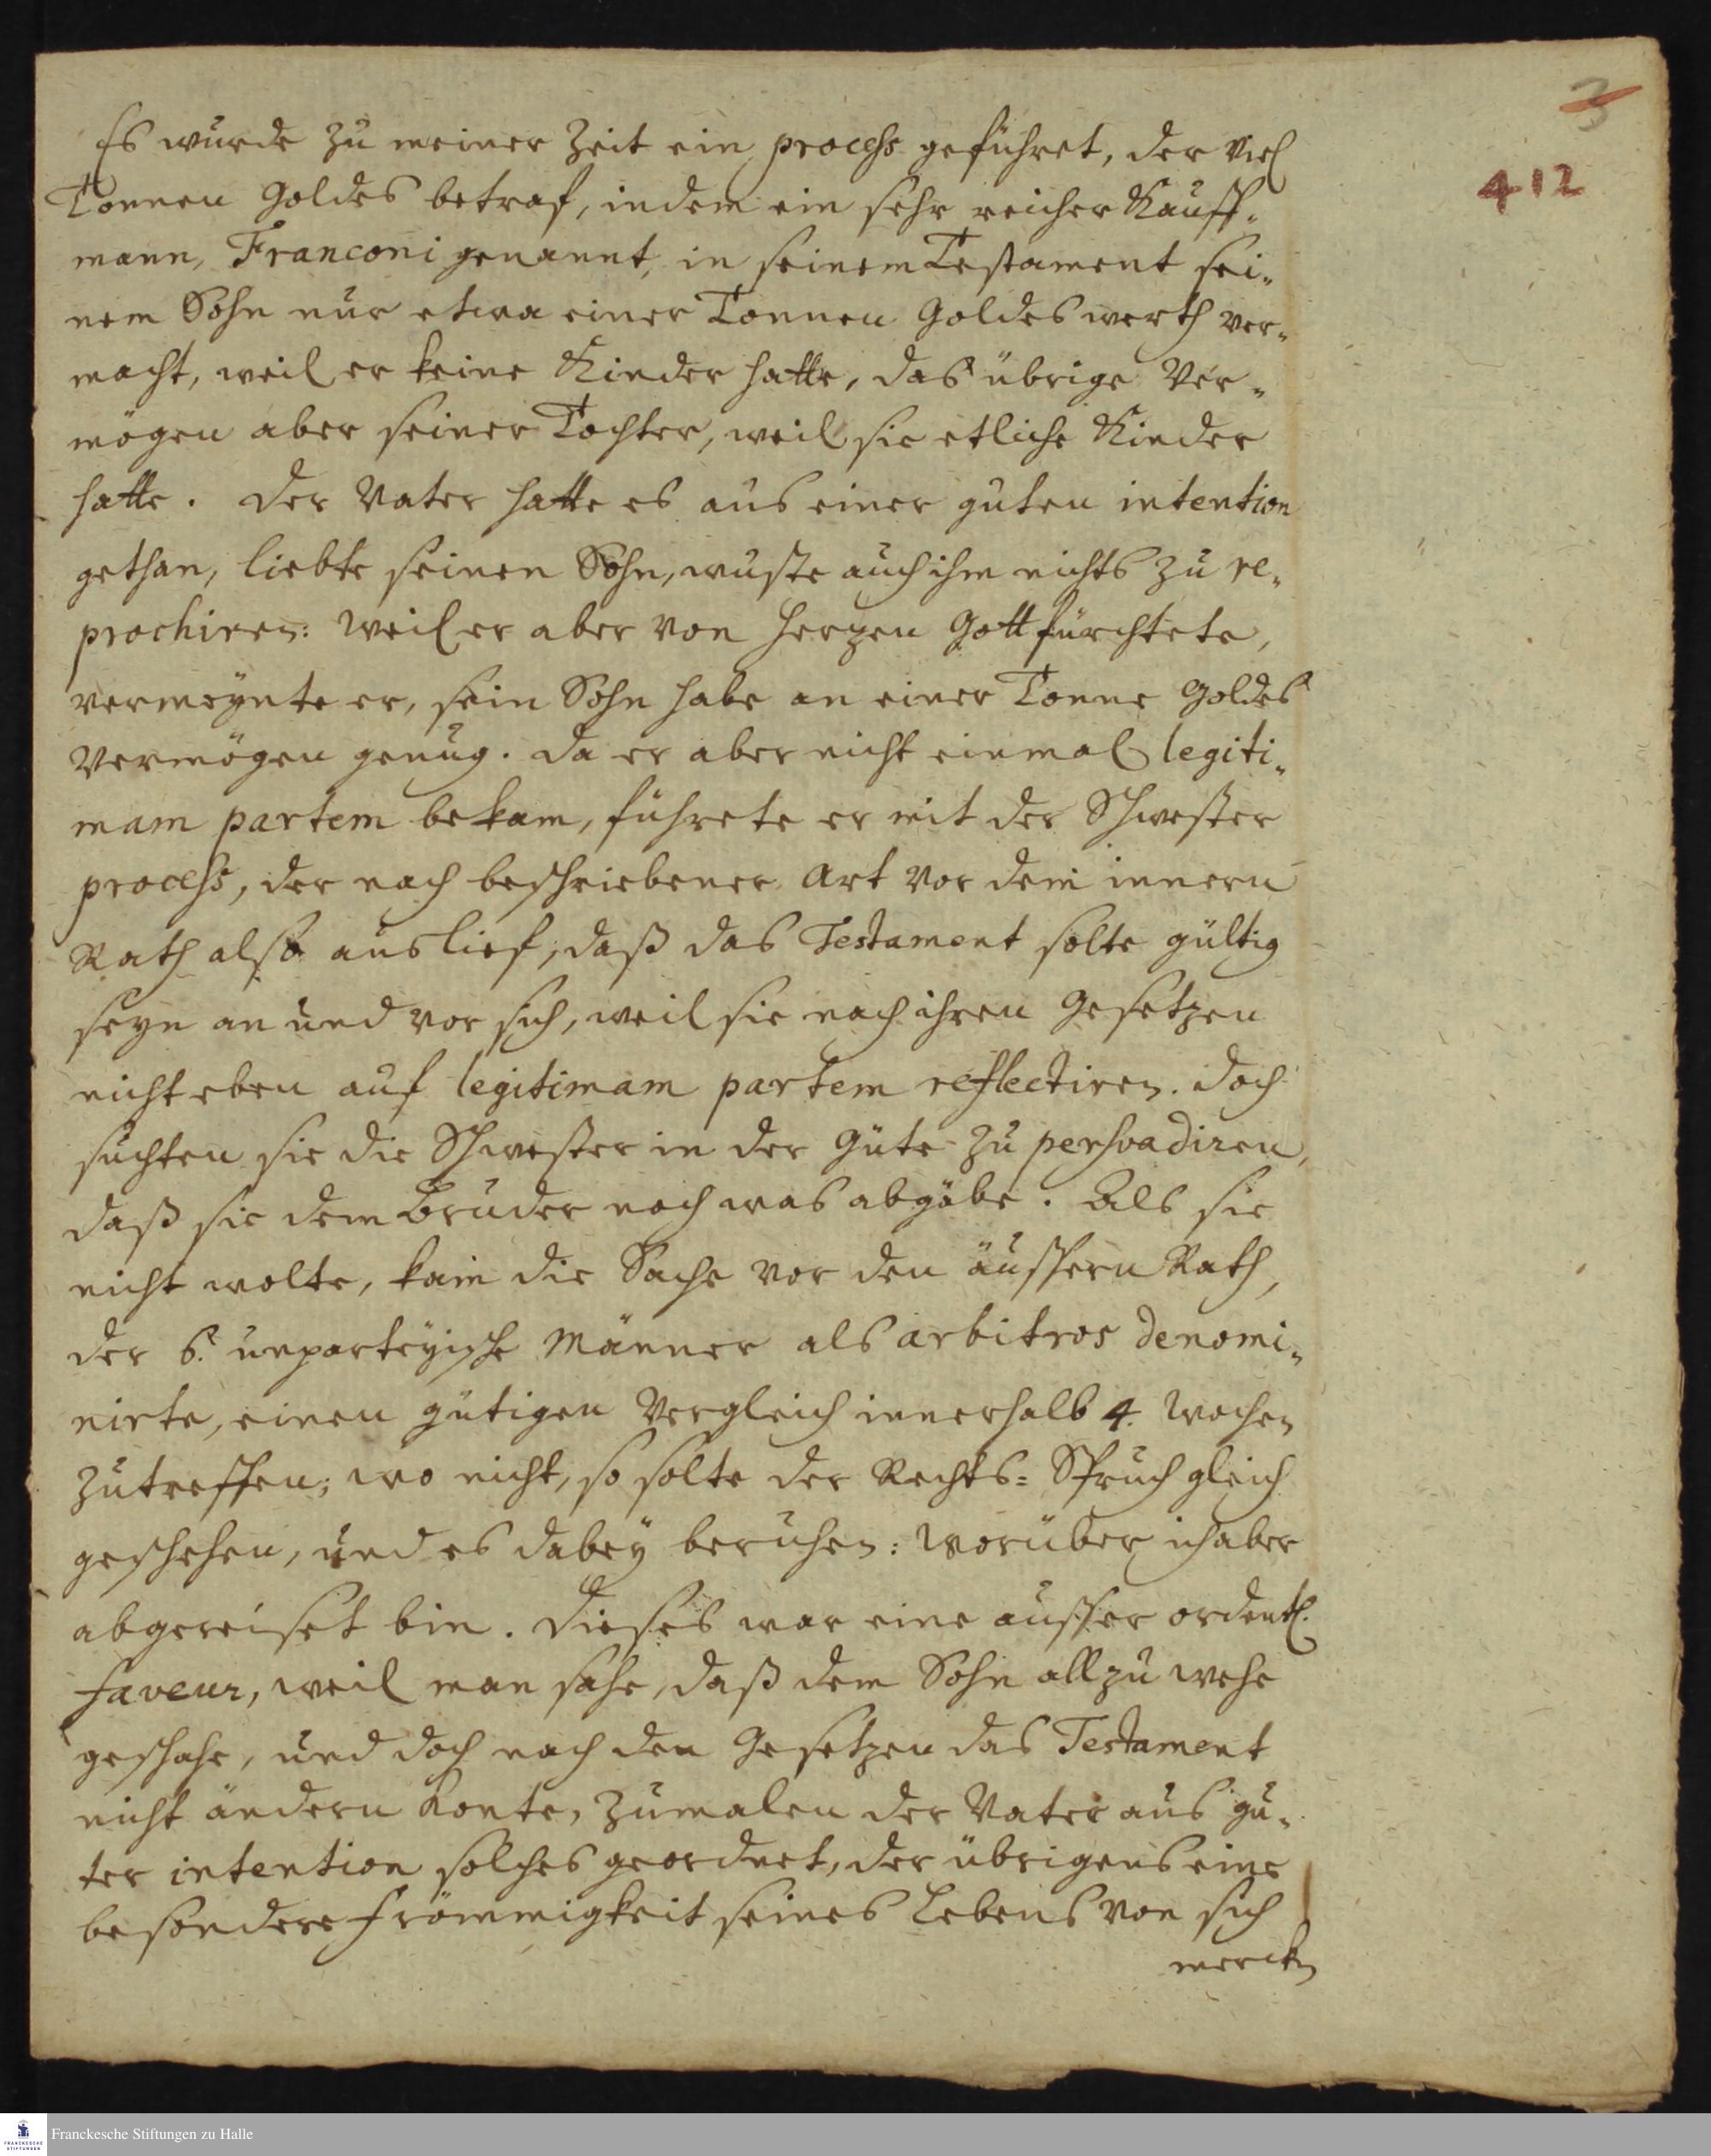 3
412
Es wurde zu meiner Zeit ein process geführet, der viel
Tonnen Goldes betraf, indem ein sehr reicher Kauff-
mann, Franconi genannt, in seinem Testament sei-
nem Sohn nur etwa einer Tonnen Goldes werth ver-
macht, weil er keine Kinder hatte, das übrige Ver-
mögen aber seiner Tochter, weil sie etliche Kinder
hatte. Der Vater hatte es aus einer guten intention
gethan, liebte seinen Sohn, wuste auch ihm nichts zu re-
prochiren: Weil er aber von Herzen Gott fürchtete,
vermeynte er, sein Sohn habe an einer Tonne Goldes
Vermögen genug. Da er aber nicht einmal legiti-
mam partem bekam, führete er mit der Schwester
process, der nach beschriebener Art vor dem innern
Rath also auslief, daß das Testament solte gültig
seyn an und vor sich, weil sie nach ihren Gesetzen
nicht eben auf legitimam partem reflectiren. Doch
suchten sie die Schwester in der Güte zu persvadiren,
daß sie dem Bruder noch was abgäbe. Als sie
nicht wolte, kam die Sache vor den äussern Rath,
der 6. unparteyische Männer als arbitros denomi-
nirte, einen gütigen Vergleich innerhalb 4. Wochen
zutreffen; wo nicht, so solte der Rechts-Spruch gleich
geschehen, und es dabey beruhen: Worüber ich aber
abgereiset bin. Dieses war eine ausser ordentl.
faveur, weil man sahe, daß dem Sohn allzu wehe
geschahe, und doch nach den Gesetzen das Testament
nicht ändern konte, zumalen der Vater aus gu-
ter intention solches geordnet, der übrigens eine
besondere Frömmigkeit seines Lebens von sich
mercken
Franckesche Stiftungen zu Halle
FRANCKESCHE
STIFTUNGEN